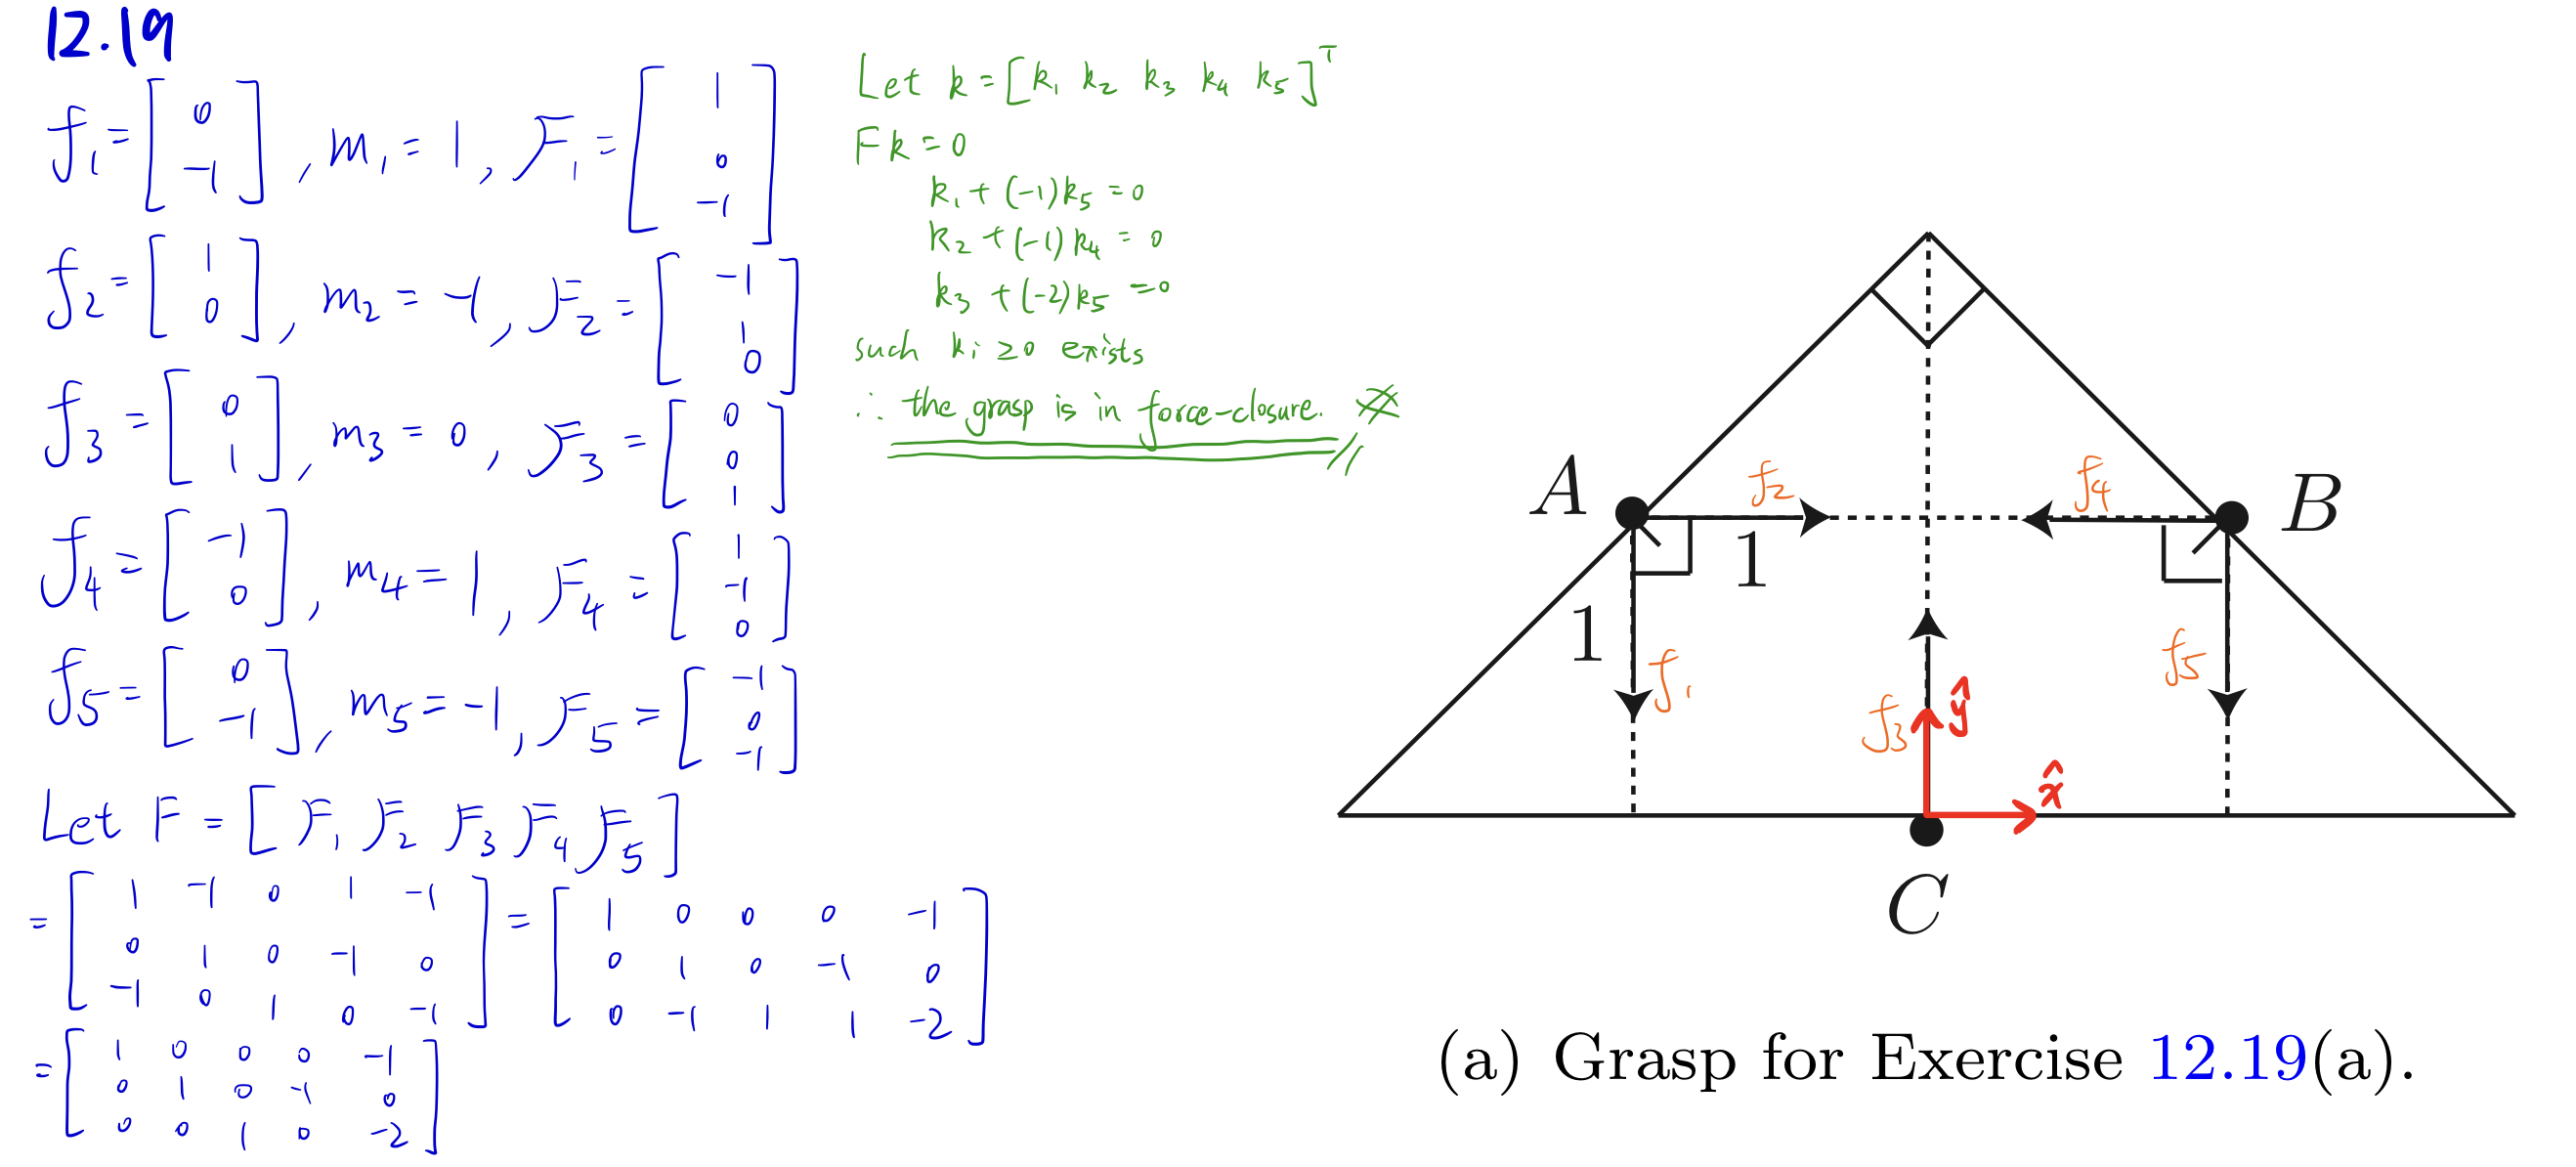 12.19
f₁ = [0 -1], m₁ = 1, F₁ = [1 0 -1]
f₂ = [1 0], m₂ = -1, F₂ = [-1 1 0]
f₃ = [0 1], m₃ = 0, F₃ = [0 0 1]
f₄ = [-1 0], m₄ = 1, F₄ = [1 -1 0]
f₅ = [0 -1], m₅ = -1, F₅ = [-1 0 -1]
Let F = [F₁ F₂ F₃ F₄ F₅]
= [1 -1 0 1 -1
0 1 0 -1 0
-1 0 1 0 -1] = [1 0 0 0 -1
0 1 0 -1 0
0 -1 1 1 -2]
= [1 0 0 0 -1
0 1 0 -1 0
0 0 1 0 -2]
Let k = [k₁ k₂ k₃ k₄ k₅]ᵀ
Fk = 0
k₁ + (-1)k₅ = 0
k₂ + (-1)k₄ = 0
k₃ + (-2)k₅ = 0
such kᵢ ≥ 0 exists
∴ the grasp is in force-closure.
A
f₂
f₄
B
1
1
f₁
f₃
ŷ
f₅
x̂
C
(a) Grasp for Exercise 12.19(a).